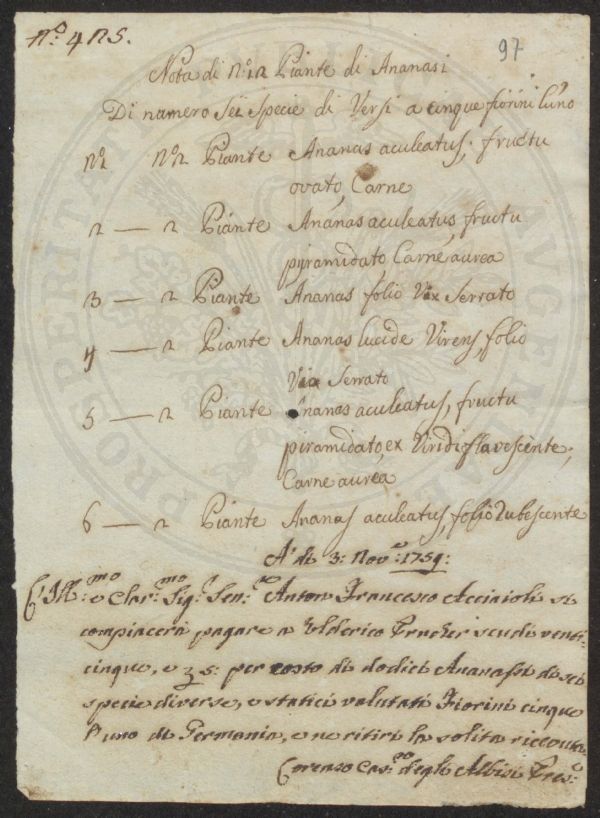 Nº 425.
97
Nota di Nº 12 Piante di Ananasi
Di namero Sei Specie di Versi a cinque fiorini l'uno
Nº 1 Nº 2 Piante Ananas aculeatus, fructu
ovato, Carne
2 — 2 Piante Ananas aculeatus, fructu
pyramidato, Carne aurea
3 — 2 Piante Ananas folio Vix Serrato
4 — 2 Piante Ananas lucide Virens, folio
Vix Serrato
5 — 2 Piante Ananas aculeatus, fructu
piramidato, ex Viridi flavescente,
Carne aurea
6 — 2 Piante Ananas aculeatus, folio Rubescente
A' di 3: Nov.e 1759:
L'Ill:mo e Clar:mo Sig:r Sen:re Anton Francesco Acciaioli si
compiacerà pagare a Ulderico scudi venti
cinque, e 5: per costo di dodici Ananassi di sei
specie diverse, e statici valutati Fiorini cinque
l'uno di Germania, e ne ritiri la solita riceuta
Lorenzo degli Albizi Pres:e
PROSPERITATI AUGENDAE